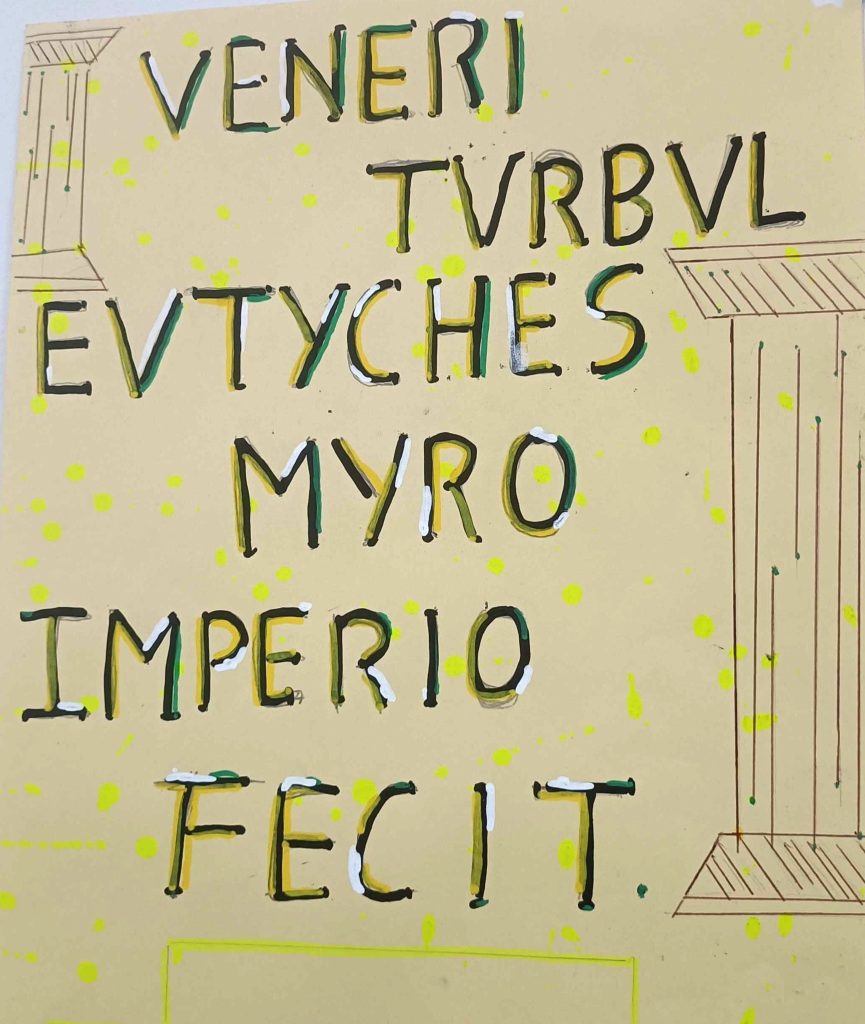 VENERI
TVRBVL
EVTYCHES
MYRO
IMPERIO
FECIT.